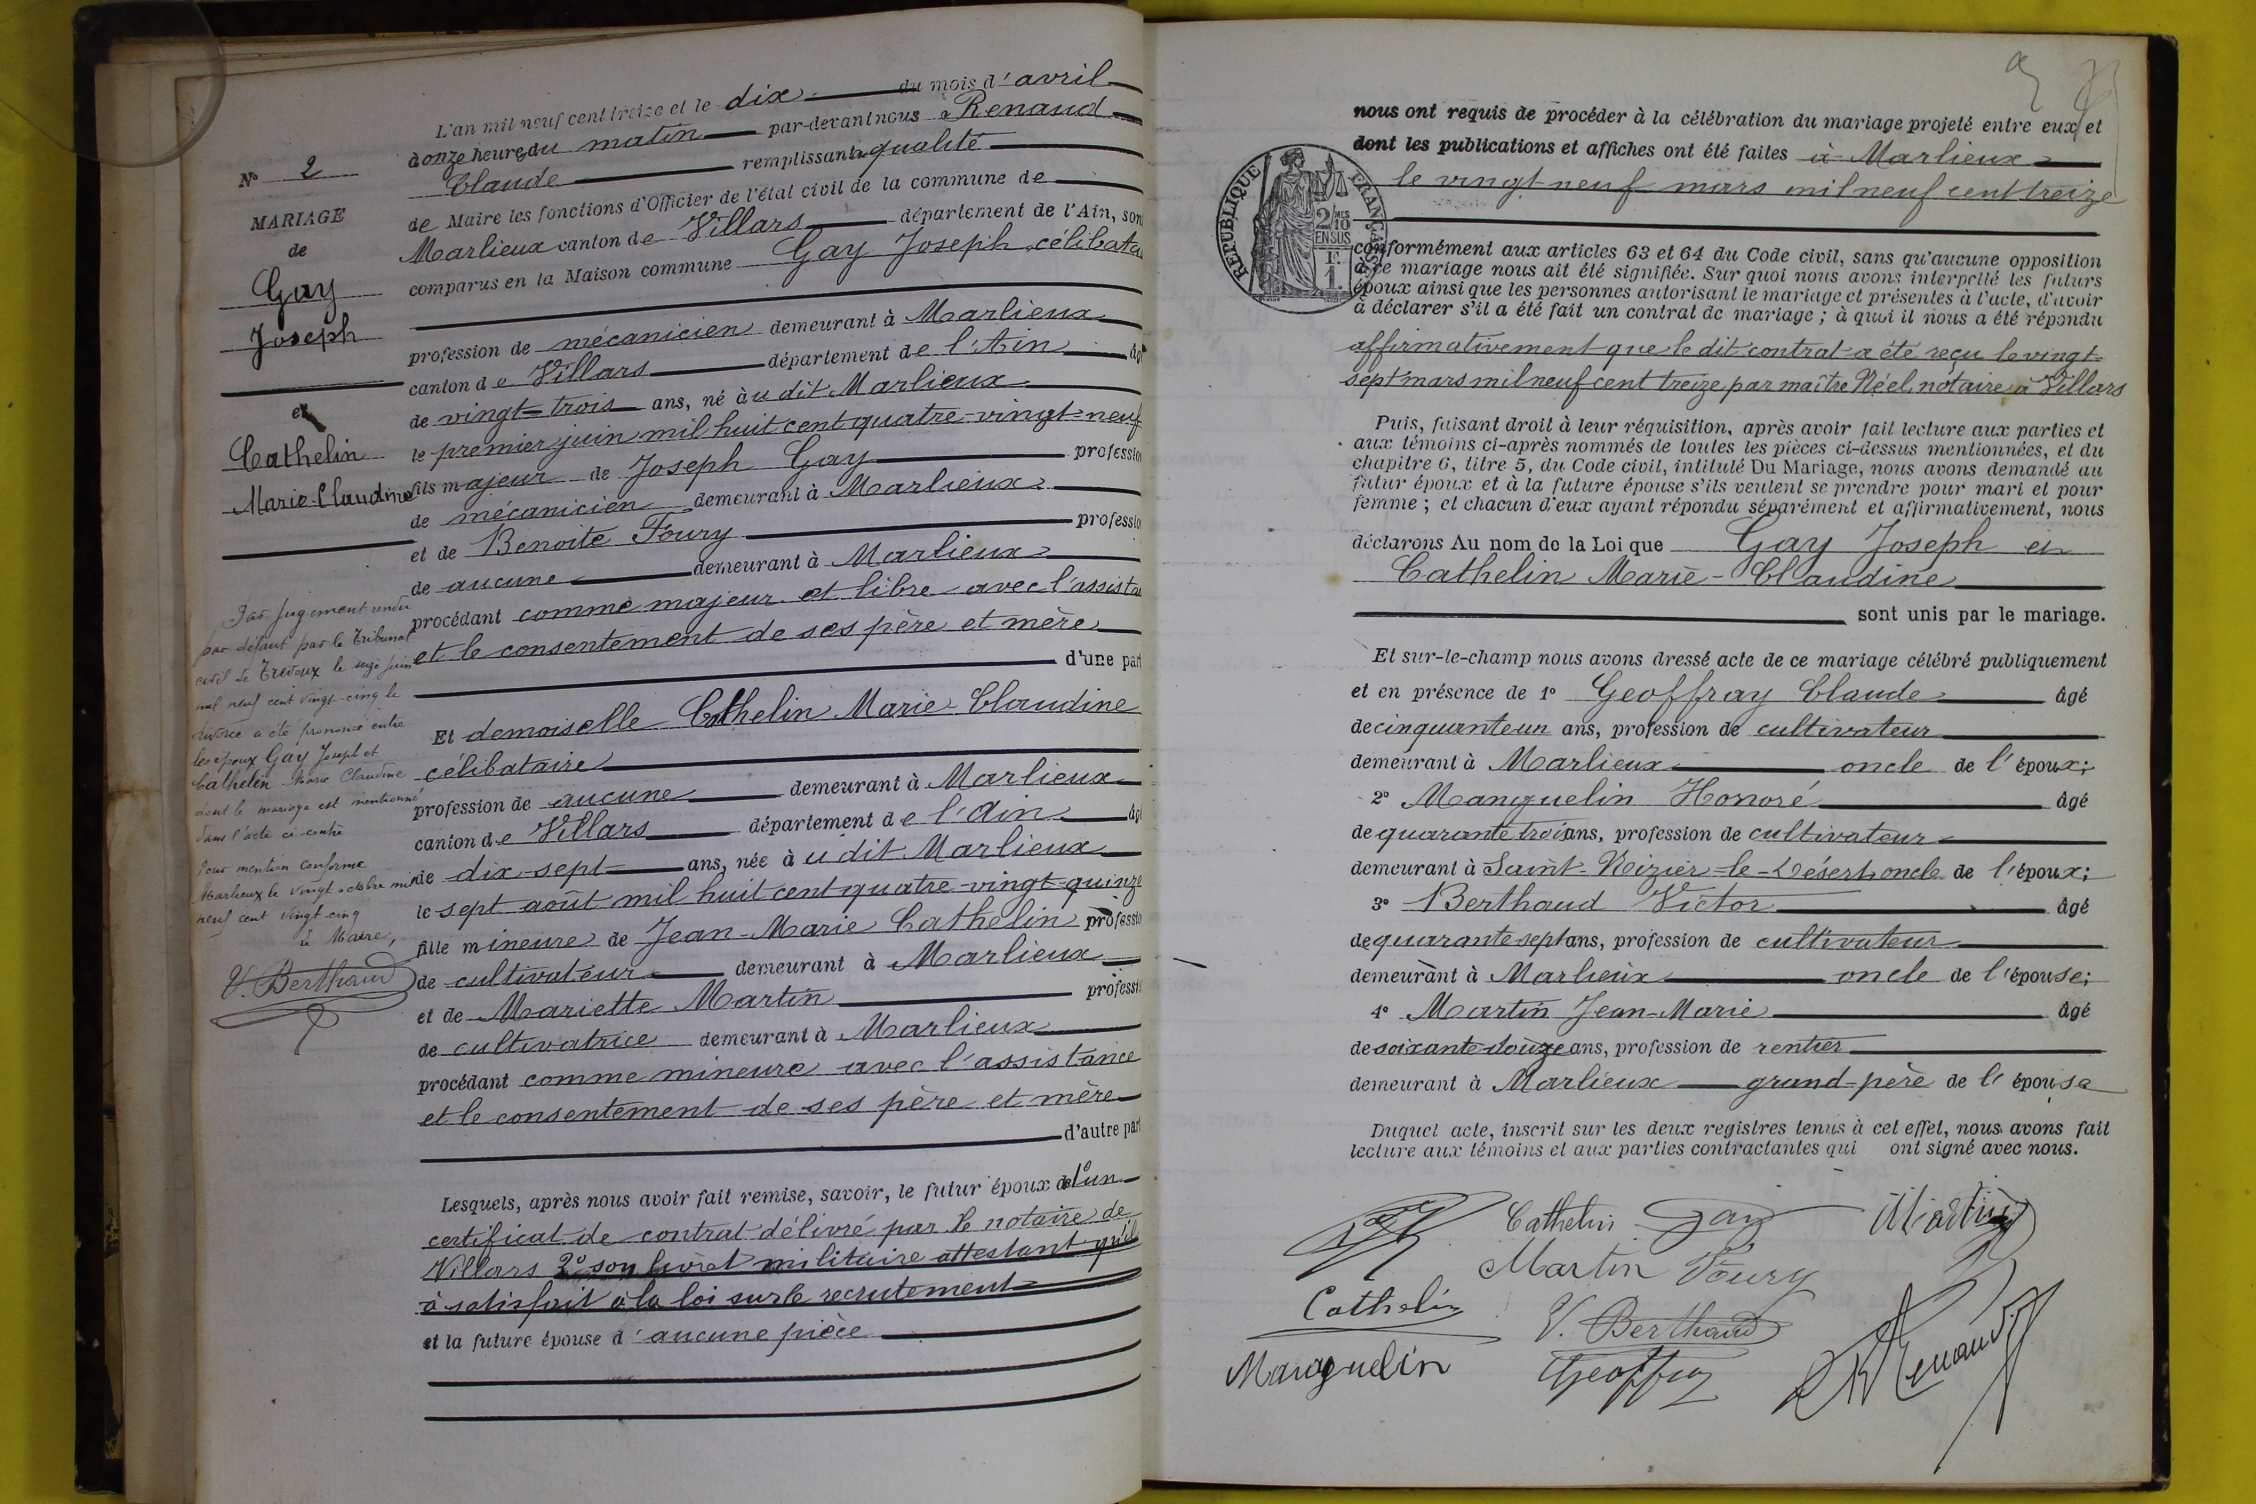 N° 2
MARIAGE
de
Gay
Joseph
et
Cathelin
Marie-Claudine
Par jugement rendu
par défaut par le Tribunal
civil de Trévoux le seize juin
mil neuf cent vingt-cinq le
divorce a été prononcé entre
les époux Gay Joseph et
Cathelin Marie Claudine
dont le mariage est mentionné
dans l'acte ci-contre
Pour mention conforme
Marlieux le vingt octobre mil
neuf cent vingt cinq
Le Maire,
V. Berthaud
L'an mil neuf cent treize et le dix du mois d'avril
à onze heures du matin par-devant nous Renaud
Claude remplissant qualité
de Maire les fonctions d'Officier de l'état civil de la commune de
Marlieux canton de Villars département de l'Ain, sont
comparus en la Maison commune Gay Joseph célibatai
profession de mécanicien demeurant à Marlieux
canton de Villars département de l'Ain âgé
de vingt-trois ans, né audit Marlieux
le premier juin mil huit cent quatre-vingt-neuf
fils majeur de Joseph Gay profession
de mécanicien demeurant à Marlieux
et de Benoite Foury profession
de aucune demeurant à Marlieux
procédant comme majeur et libre avec l'assista
et le consentement de ses père et mère
d'une part
Et demoiselle Cathelin Marie Claudine
célibataire
profession de aucune demeurant à Marlieux
canton de Villars département de l'Ain âgé
de dix-sept ans, née audit Marlieux
le sept août mil huit cent quatre-vingt-quinze
fille mineure de Jean-Marie Cathelin professio
de cultivateur demeurant à Marlieux
et de Mariette Martin professi
de cultivatrice demeurant à Marlieux
procédant comme mineure avec l'assistance
et le consentement de ses père et mère
d'autre part
Lesquels, après nous avoir fait remise, savoir, le futur époux de 1° un
certificat de contrat délivré par le notaire de
Villars 2° son livret militaire attestant qu'il
a satisfait à la loi sur le recrutement
et la future épouse d'aucune pièce
nous ont requis de procéder à la célébration du mariage projeté entre eux et
dont les publications et affiches ont été faites à Marlieux
le vingt-neuf mars mil neuf cent treize
RÉPUBLIQUE FRANÇAISE
2/10 EN SUS
1 F.
conformément aux articles 63 et 64 du Code civil, sans qu'aucune opposition
à ce mariage nous ait été signifiée. Sur quoi nous avons interpellé les futurs
époux ainsi que les personnes autorisant le mariage et présentes à l'acte, d'avoir
à déclarer s'il a été fait un contrat de mariage ; à quoi il nous a été répondu
affirmativement que le dit contrat a été reçu le vingt-
sept mars mil neuf cent treize par maître Néel, notaire à Villars
Puis, faisant droit à leur réquisition, après avoir fait lecture aux parties et
aux témoins ci-après nommés de toutes les pièces ci-dessus mentionnées, et du
chapitre 6, titre 5, du Code civil, intitulé Du Mariage, nous avons demandé au
futur époux et à la future épouse s'ils veulent se prendre pour mari et pour
femme ; et chacun d'eux ayant répondu séparément et affirmativement, nous
déclarons Au nom de la Loi que Gay Joseph et
Cathelin Marie-Claudine
sont unis par le mariage.
Et sur-le-champ nous avons dressé acte de ce mariage célébré publiquement
et en présence de 1° Geoffray Claude âgé
de cinquante un ans, profession de cultivateur
demeurant à Marlieux oncle de l'époux;
2° Manguelin Honoré âgé
de quarante trois ans, profession de cultivateur
demeurant à Saint-Nizier-le-Désert oncle de l'époux;
3° Berthaud Victor âgé
de quarante sept ans, profession de cultivateur
demeurant à Marlieux oncle de l'épouse;
4° Martin Jean-Marie âgé
de soixante douze ans, profession de rentier
demeurant à Marlieux grand-père de l'épouse
Duquel acte, inscrit sur les deux registres tenus à cet effet, nous avons fait
lecture aux témoins et aux parties contractantes qui ont signé avec nous.
Cathelin Gay Martin
Martin Foury
Cathelin V. Berthaud
Manguelin Geoffray Renaud